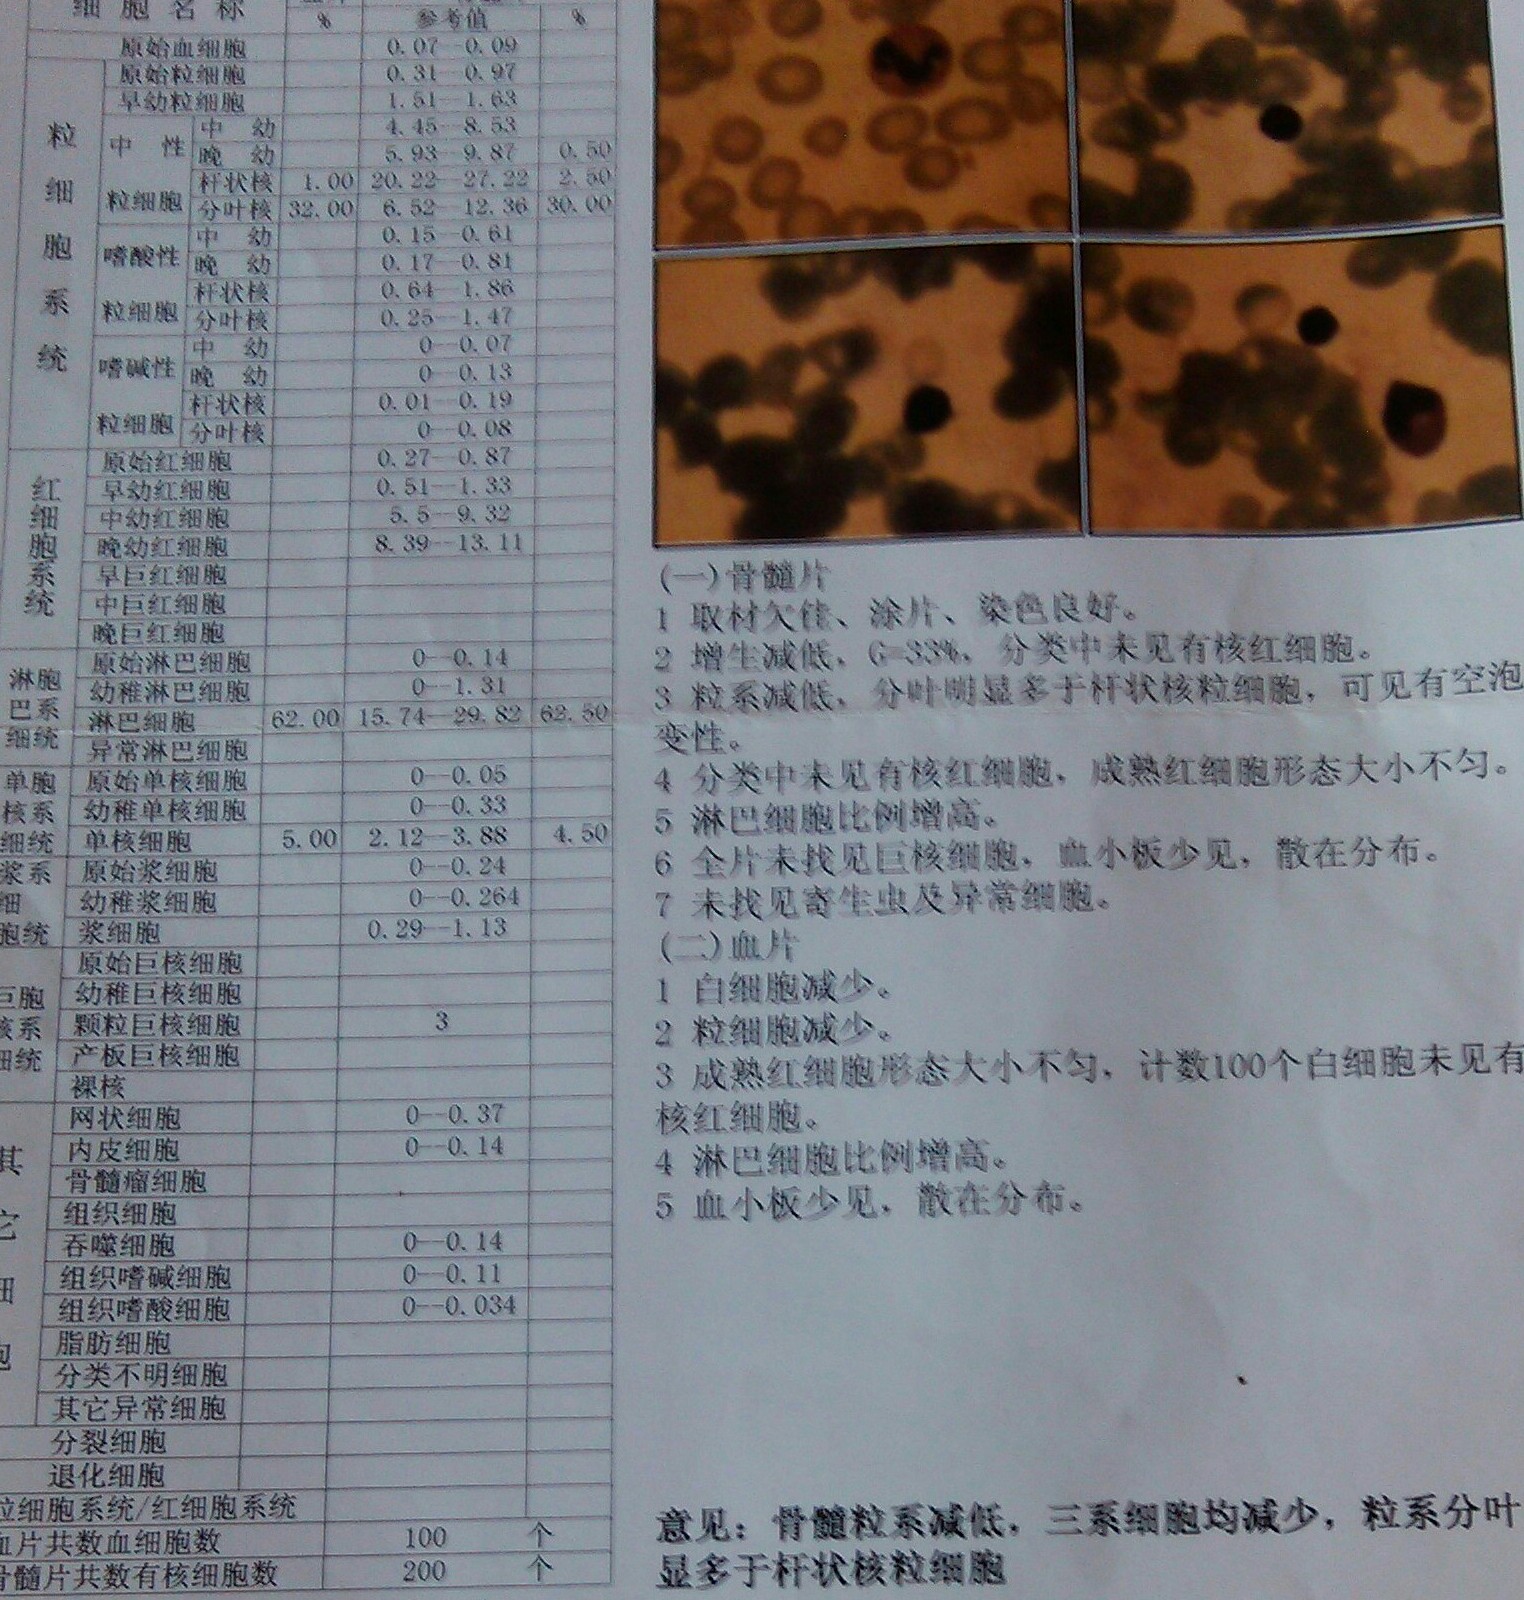 细 胞 名 称
% 参考值 %
原始血细胞 0.07—0.09
粒细胞系统
原始粒细胞 0.31—0.97
早幼粒细胞 1.51—1.63
中性粒细胞
中 幼 4.45—8.53
晚 幼 5.93—9.87 0.50
杆状核 1.00 20.22—27.22 2.50
分叶核 32.00 6.52—12.36 30.00
嗜酸性粒细胞
中 幼 0.15—0.61
晚 幼 0.17—0.81
杆状核 0.64—1.86
分叶核 0.25—1.47
嗜碱性粒细胞
中 幼 0—0.07
晚 幼 0—0.13
杆状核 0.01—0.19
分叶核 0—0.08
红细胞系统
原始红细胞 0.27—0.87
早幼红细胞 0.51—1.33
中幼红细胞 5.5—9.32
晚幼红细胞 8.39—13.11
早巨红细胞
中巨红细胞
晚巨红细胞
淋胞
巴系
细统
原始淋巴细胞 0—0.14
幼稚淋巴细胞 0—1.31
淋巴细胞 62.00 15.74—29.82 62.50
异常淋巴细胞
单胞
核系
细统
原始单核细胞 0—0.05
幼稚单核细胞 0—0.33
单核细胞 5.00 2.12—3.88 4.50
浆系
细
胞统
原始浆细胞 0—0.24
幼稚浆细胞 0—0.264
浆细胞 0.29—1.13
巨胞
核系
细统
原始巨核细胞
幼稚巨核细胞
颗粒巨核细胞 3
产板巨核细胞
裸核
其它细胞
网状细胞 0—0.37
内皮细胞 0—0.14
骨髓瘤细胞
组织细胞
吞噬细胞 0—0.14
组织嗜碱细胞 0—0.11
组织嗜酸细胞 0—0.034
脂肪细胞
分类不明细胞
其它异常细胞
分裂细胞
退化细胞
粒细胞系统/红细胞系统
血片共数血细胞数 100 个
骨髓片共数有核细胞数 200 个
(一)骨髓片
1 取材欠佳、涂片、染色良好。
2 增生减低，G=33%，分类中未见有核红细胞。
3 粒系减低，分叶明显多于杆状核粒细胞，可见有空泡
变性。
4 分类中未见有核红细胞，成熟红细胞形态大小不匀。
5 淋巴细胞比例增高。
6 全片未找见巨核细胞，血小板少见，散在分布。
7 未找见寄生虫及异常细胞。
(二)血片
1 白细胞减少。
2 粒细胞减少。
3 成熟红细胞形态大小不匀，计数100个白细胞未见有
核红细胞。
4 淋巴细胞比例增高。
5 血小板少见，散在分布。
意见：骨髓粒系减低，三系细胞均减少，粒系分叶
显多于杆状核粒细胞